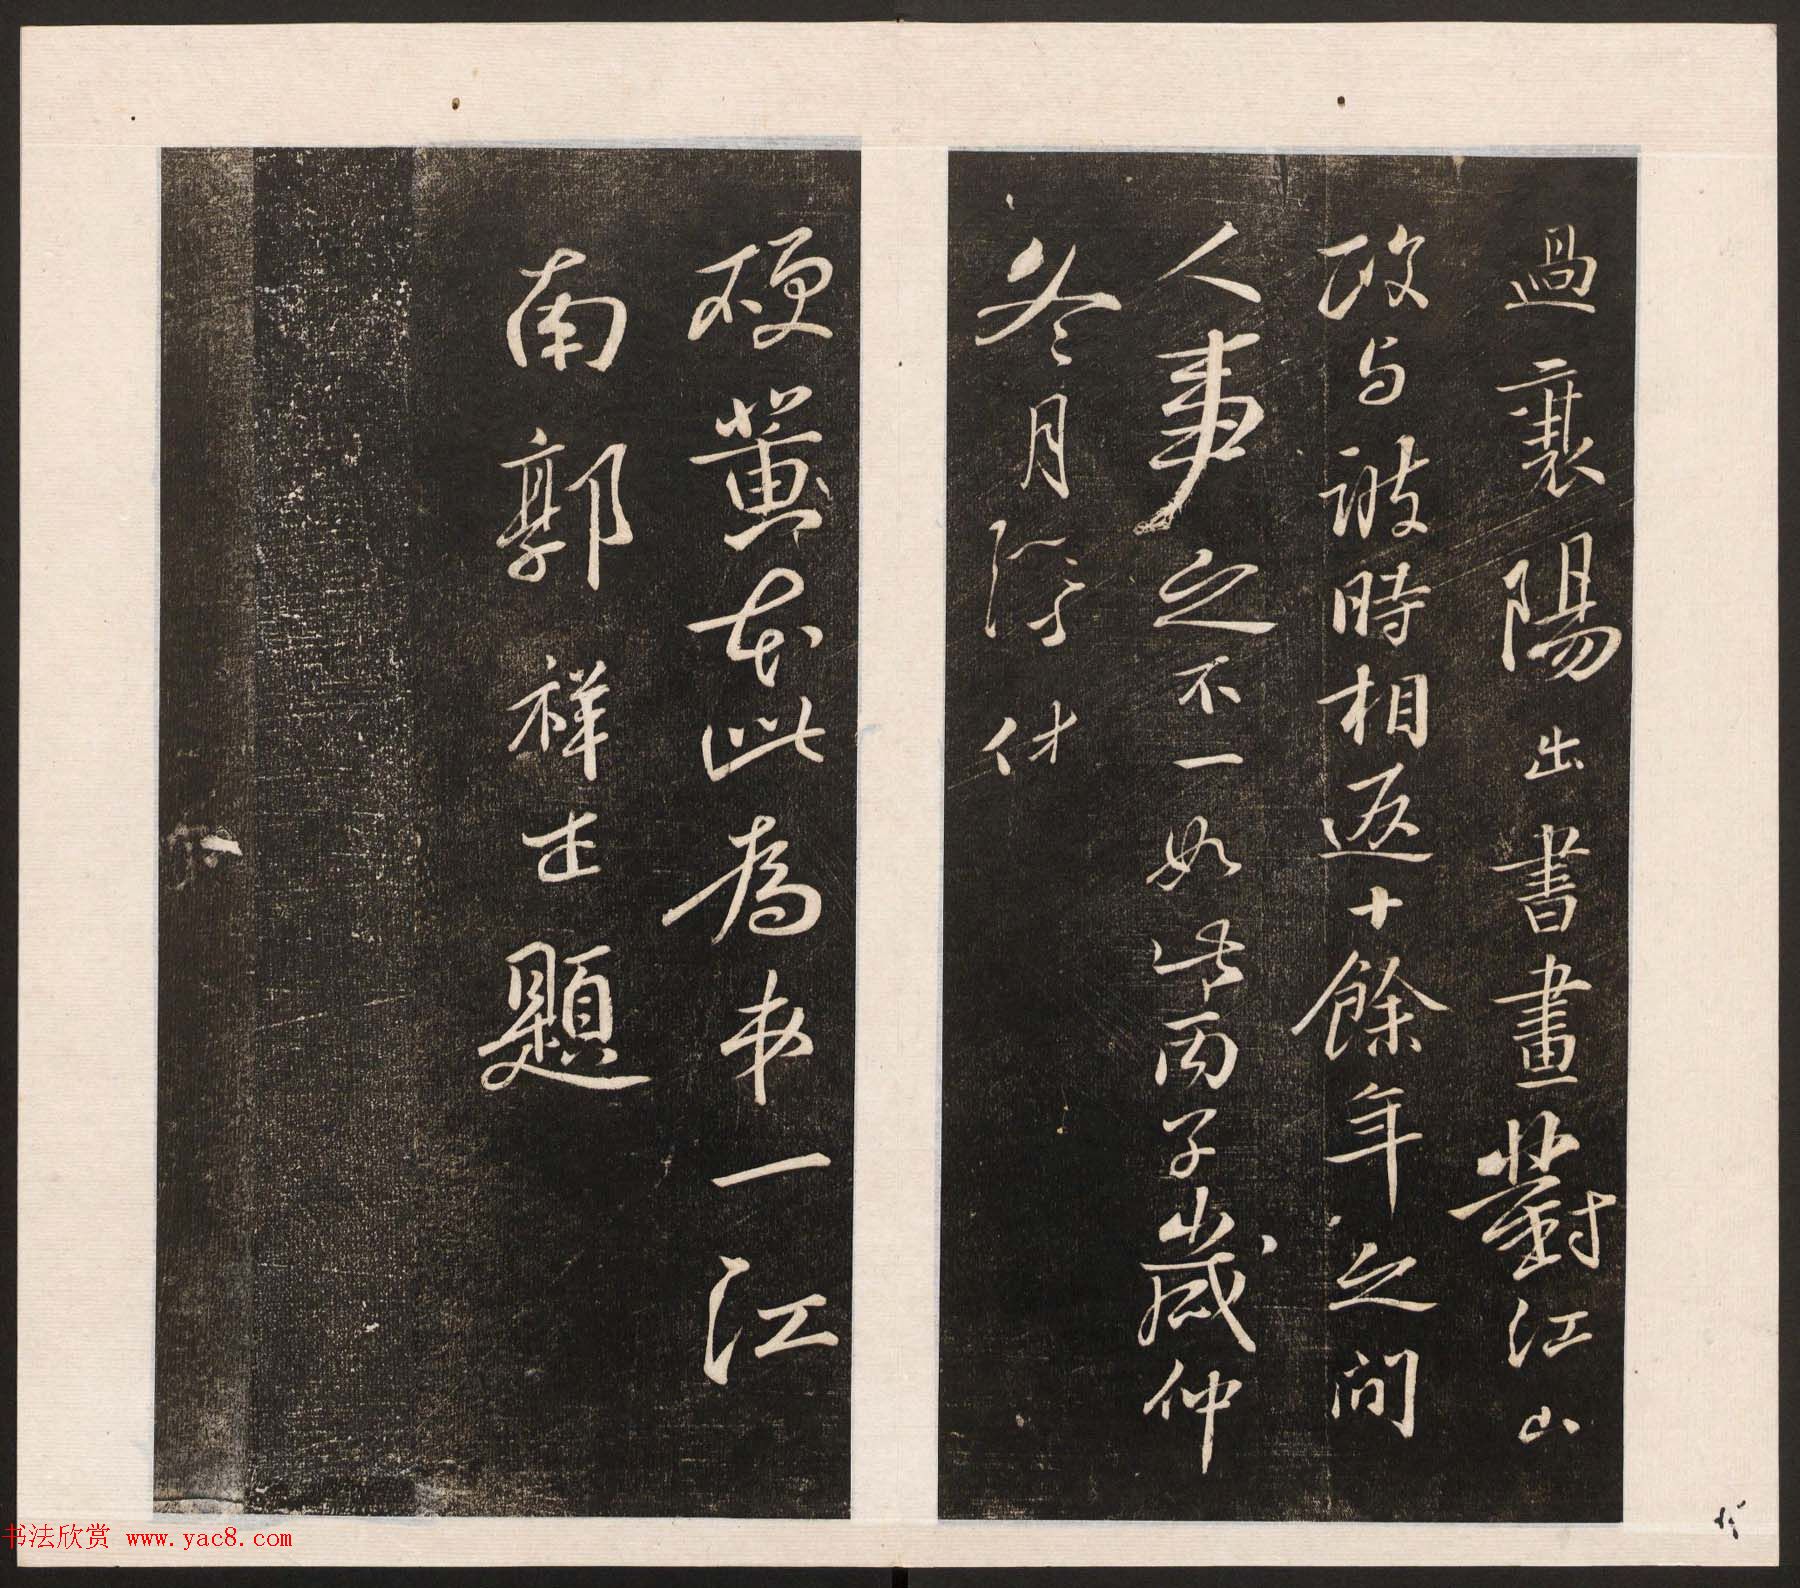 過襄陽出書畫對江山
改与諺時相返十餘年之間
人事之不一如此丙子歲仲
冬月浮休
硬黄在此為本一江
南郭祥正題
书法欣赏 www.yac8.com